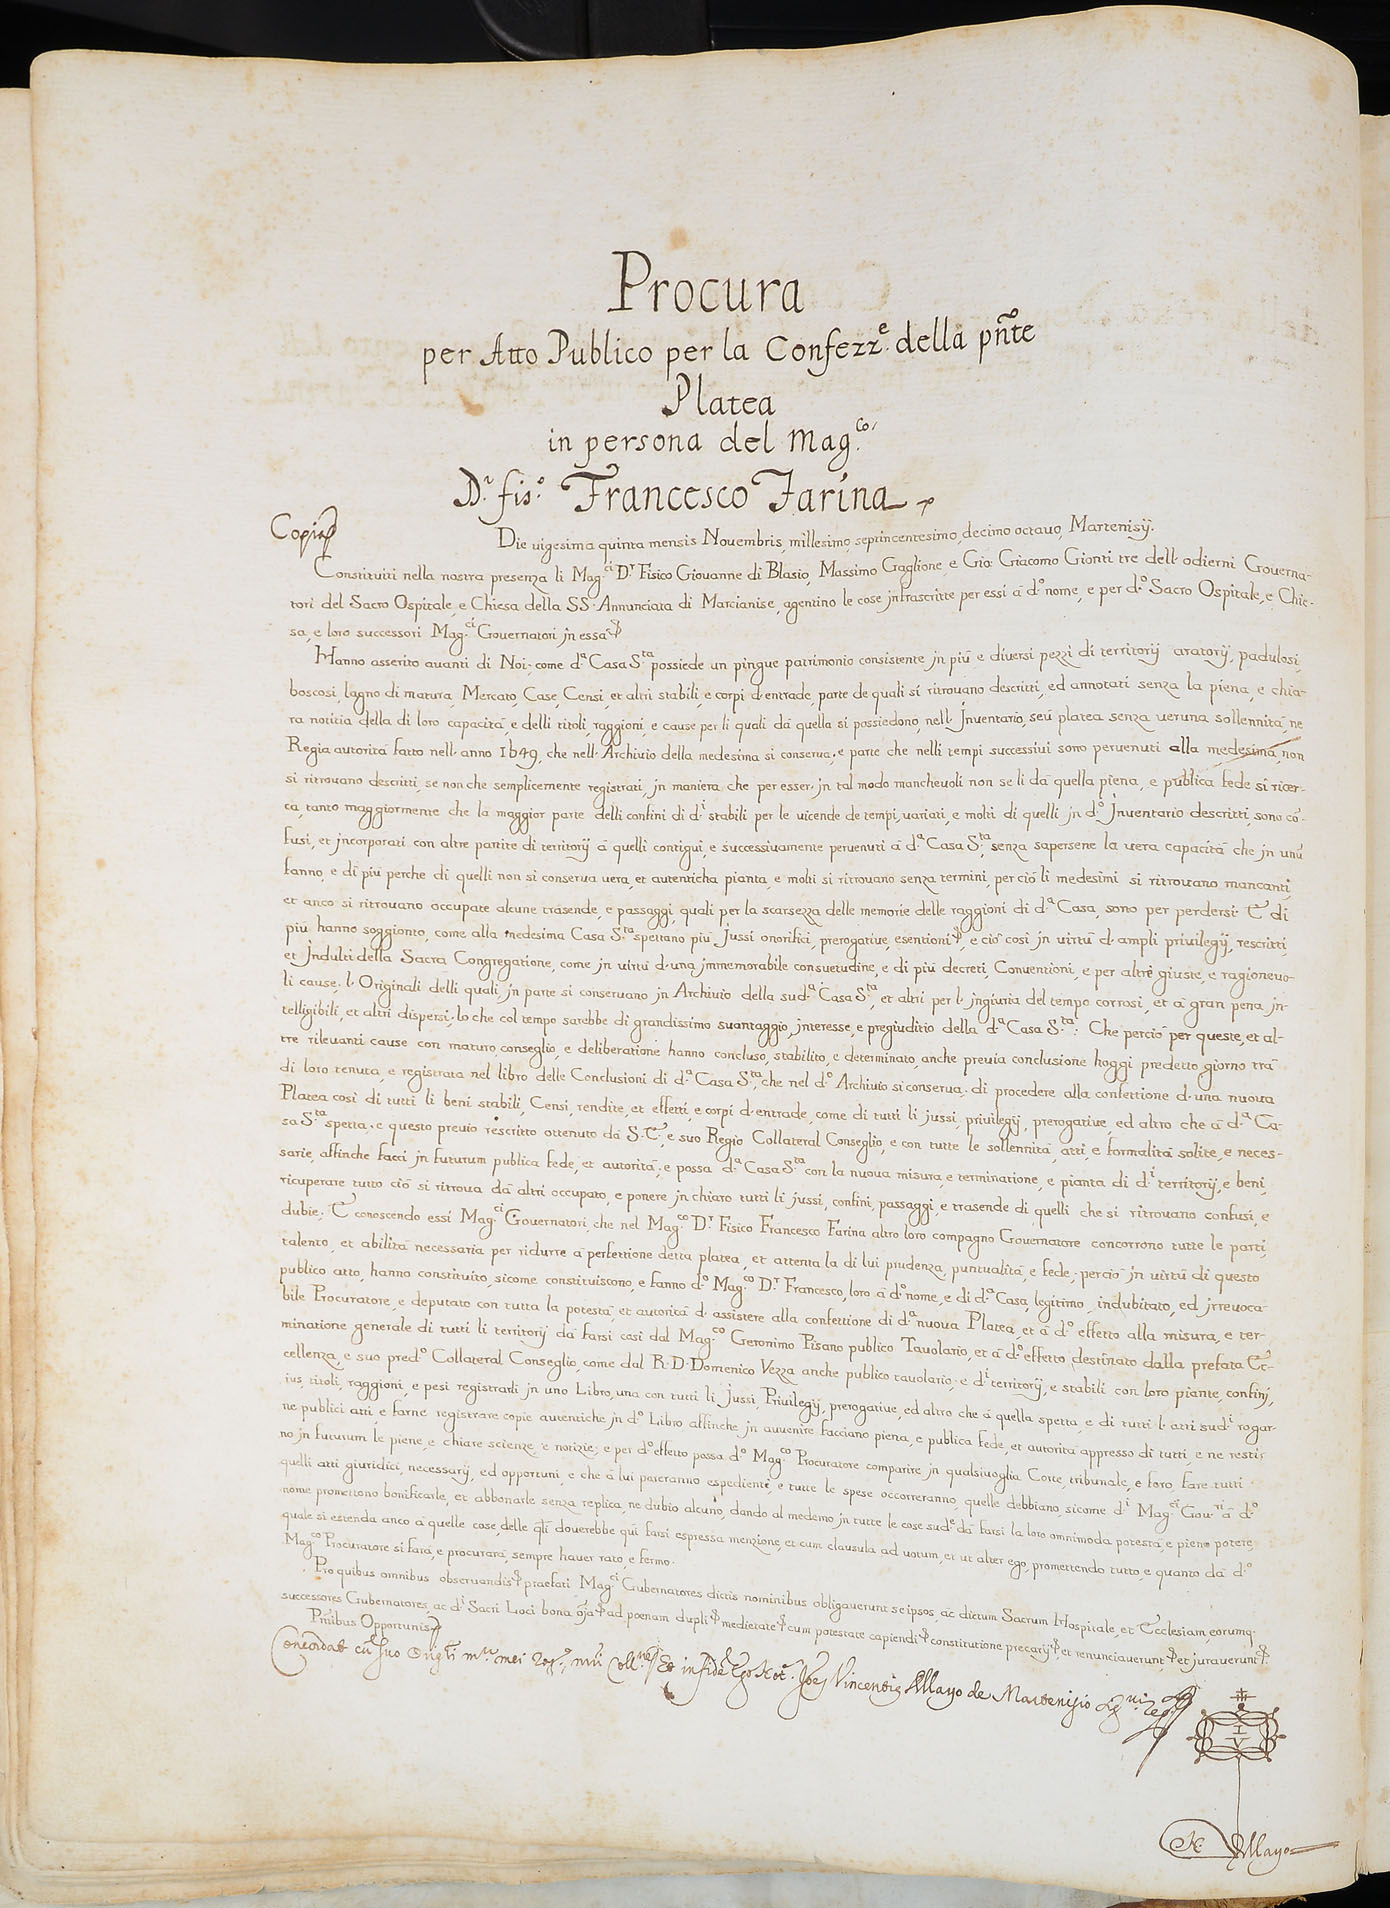 Procura
per Atto Publico per la Confezz.e della pn̄te
Platea
in persona del Mag.co
D.r fis.o Francesco Farina
Copia
Die uigesima quinta mensis Nouembris, millesimo, septincentesimo, decimo octauo, Martenisij.
Constituiti nella nostra presenza li Mag.ci D.r Fisico Giouanne di Blasio, Massimo Gaglione, e Gio: Giacomo Gionti tre dell'odierni Gouerna-
tori del Sacro Ospitale, e Chiesa della SS. Annunciata di Marcianise, agentino le cose jnfrascritte per essi à d.o nome, e per d.o Sacro Ospitale, e Chie-
sa, e loro successori Mag.ci Gouernatori jn essa
Hanno asserito auanti di Noi; come d.a Casa S.ta possiede un pingue patrimonio consistente jn più e diuersi pezzi di territorij aratorij, padulosi,
boscosi, lagno di matura, Mercato, Case, Censi, et altri stabili, e corpi d'entrade, parte de quali si ritrouano descritti, ed annotati senza la piena, e chia-
ra notitia della di loro capacità, e delli titoli, raggioni, e cause per li quali da quella si possiedono, nell'Jnuentario, seù platea senza ueruna sollennità, ne
Regia autorità fatto nell'anno 1649, che nell'Archiuio della medesima si conserua; e parte che nelli tempi successiui sono peruenuti alla medesima, non
si ritrouano descritti, se non che semplicemente registrati, jn maniera che per esser jn tal modo mancheuoli non se li dà quella piena, e publica fede si ricer-
ca, tanto maggiormente che la maggior parte delli confini di d.i stabili per le uicende de tempi, uariati, e molti di quelli jn d.o Jnuentario descritti, sono cō-
fusi, et jncorporati con altre partite di territorij à quelli contigui, e successiuamente peruenuti à d.a Casa S.ta, senza sapersene la uera capacità che jn unū
fanno, e di più perche di quelli non si conserua uera, et autenticha pianta, e molti si ritrouano senza termini, perciò li medesimi si ritrouano mancanti,
et anco si ritrouano occupate alcune trasende, e passaggi, quali per la scarsezza delle memorie delle raggioni di d.a Casa, sono per perdersi. E di
più hanno soggionto, come alla medesima Casa S.ta spettano più Jussi onorifici, prerogatiue, esentioni, e ciò così jn uirtù d'ampli priuilegij, rescritti,
et Jndulti della Sacra Congregatione, come jn uirtù d'una jmmemorabile consuetudine, e di più decreti, Conuentioni, e per altre giuste, e ragioneuo-
li cause; l'Originali delli quali, jn parte si conseruano jn Archiuio della sud.a Casa S.ta, et altri per l'jngiuria del tempo corrosi, et à gran pena jn-
telligibili, et altri dispersi; lo che col tempo sarebbe di grandissimo suantaggio, jnteresse, e pregiuditio della d.a Casa S.ta: Che perciò per queste, et al-
tre rileuanti cause con maturo conseglio, e deliberatione hanno concluso, stabilito, e determinato, anche preuia conclusione hoggi predetto giorno trà
di loro tenuta, e registrata nel libro delle Conclusioni di d.a Casa S.ta, che nel d.o Archiuio si conserua; di procedere alla confettione d'una nuoua
Platea così di tutti li beni stabili, Censi, rendite, et effetti, e corpi d'entrade, come di tutti li jussi, priuilegij, prerogatiue, ed altro che à d.a Ca-
sa S.ta spetta; e questo preuio rescritto ottenuto dà S. E., e suo Regio Collateral Conseglio, e con tutte le sollennità, atti, e formalità solite, e neces-
sarie, affinche facci jn futurum publica fede, et autorità; e possa d.a Casa S.ta con la nuoua misura, e terminatione, e pianta di d.i territorij, e beni,
ricuperare tutto ciò si ritroua dà altri occupato, e ponere jn chiaro tutti li jussi, confini, passaggi, e trasende di quelli che si ritrouano confusi, e
dubie; E conoscendo essi Mag.ci Gouernatori, che nel Mag.co D.r Fisico Francesco Farina altro loro compagno Gouernatore concorrono tutte le parti,
talento, et abilità necessaria per ridurre à perfettione detta platea, et attenta la di lui prudenza, puntualità, e fede; perciò jn uirtù di questo
publico atto, hanno constituito, sicome constituiscono, e fanno d.o Mag.co D.r Francesco, loro à d.o nome, e di d.a Casa, legitimo, indubitato, ed jrreuoca-
bile Procuratore, e deputato con tutta la potestà, et autorità d'assistere alla confettione di d.a nuoua Platea, et à d.o effetto alla misura, e ter-
minatione generale di tutti li territorij dà farsi così dal Mag.co Geronimo Pisano publico Tauolario, et à d.o effetto destinato dalla prefata Ec-
cellenza, e suo pred.o Collateral Conseglio, come dal R. D. Domenico Vezza anche publico tauolario; e d.i territorij, e stabili con loro piante, confini,
ius, titoli, raggioni, e pesi registrarli jn uno Libro, una con tutti li Jussi, Priuilegij, prerogatiue, ed altro che à quella spetta, e di tutti l'atti sud.i rogar-
ne publici atti, e farne registrare copie autentiche jn d.o Libro affinche jn auuenire facciano piena, e publica fede, et autorità appresso di tutti, e ne resti-
no jn futurum le piene, e chiare scienze, e notizie; e per d.o effetto possa d.o Mag.co Procuratore comparire jn qualsiuoglia Corte, tribunale, e foro, fare tutti
quelli atti giuridici, necessarij, ed opportuni, e che à lui pareranno espedienti, e tutte le spese occorreranno, quelle debbiano, sicome d.i Mag.ci Gou.ri à d.o
nome promettono bonificarle, et abbonarle senza replica, ne dubio alcuno, dando al medemo jn tutte le cose sud.e dà farsi la loro omnimoda potestà, e pieno potere,
quale si estenda anco à quelle cose, delle q̄li douerebbe qui farsi espressa menzione, et cum clausula ad uotum, et ut alter ego, promettendo tutto, e quanto dà d.o
Mag.co Procuratore si farà, e procurarà, sempre hauer rato, e fermo.
Pro quibus omnibus obseruandis praefati Mag.ci Gubernatores dictis nominibus obligauerunt se ipsos, ac dictum Sacrum Hospitale, et Ecclesiam, eorumq.
successores Gubernatores, ac d.i Sacri Loci bona ōīa ad poenam dupli medietate cum potestate capiendi constitutione precarij, et renunciauerunt, et jurauerunt.
Pn̄tibus Opportunis
Concordat cū suo Orig.li Et in fidem Ego Not.r Joēs Vincentiq Mayo de Martenisio
I
V
N. Mayo